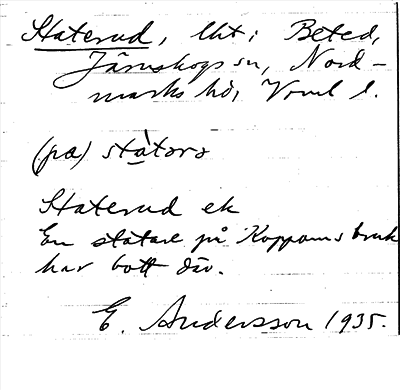 Staterud, lht; Beted,
Järnskogs sn, Nord-
marks hd, Vrml l.
(pa) státərə
Staterud ek
En statare på Koppoms bruk
har bott där.
E. Andersson 1935.